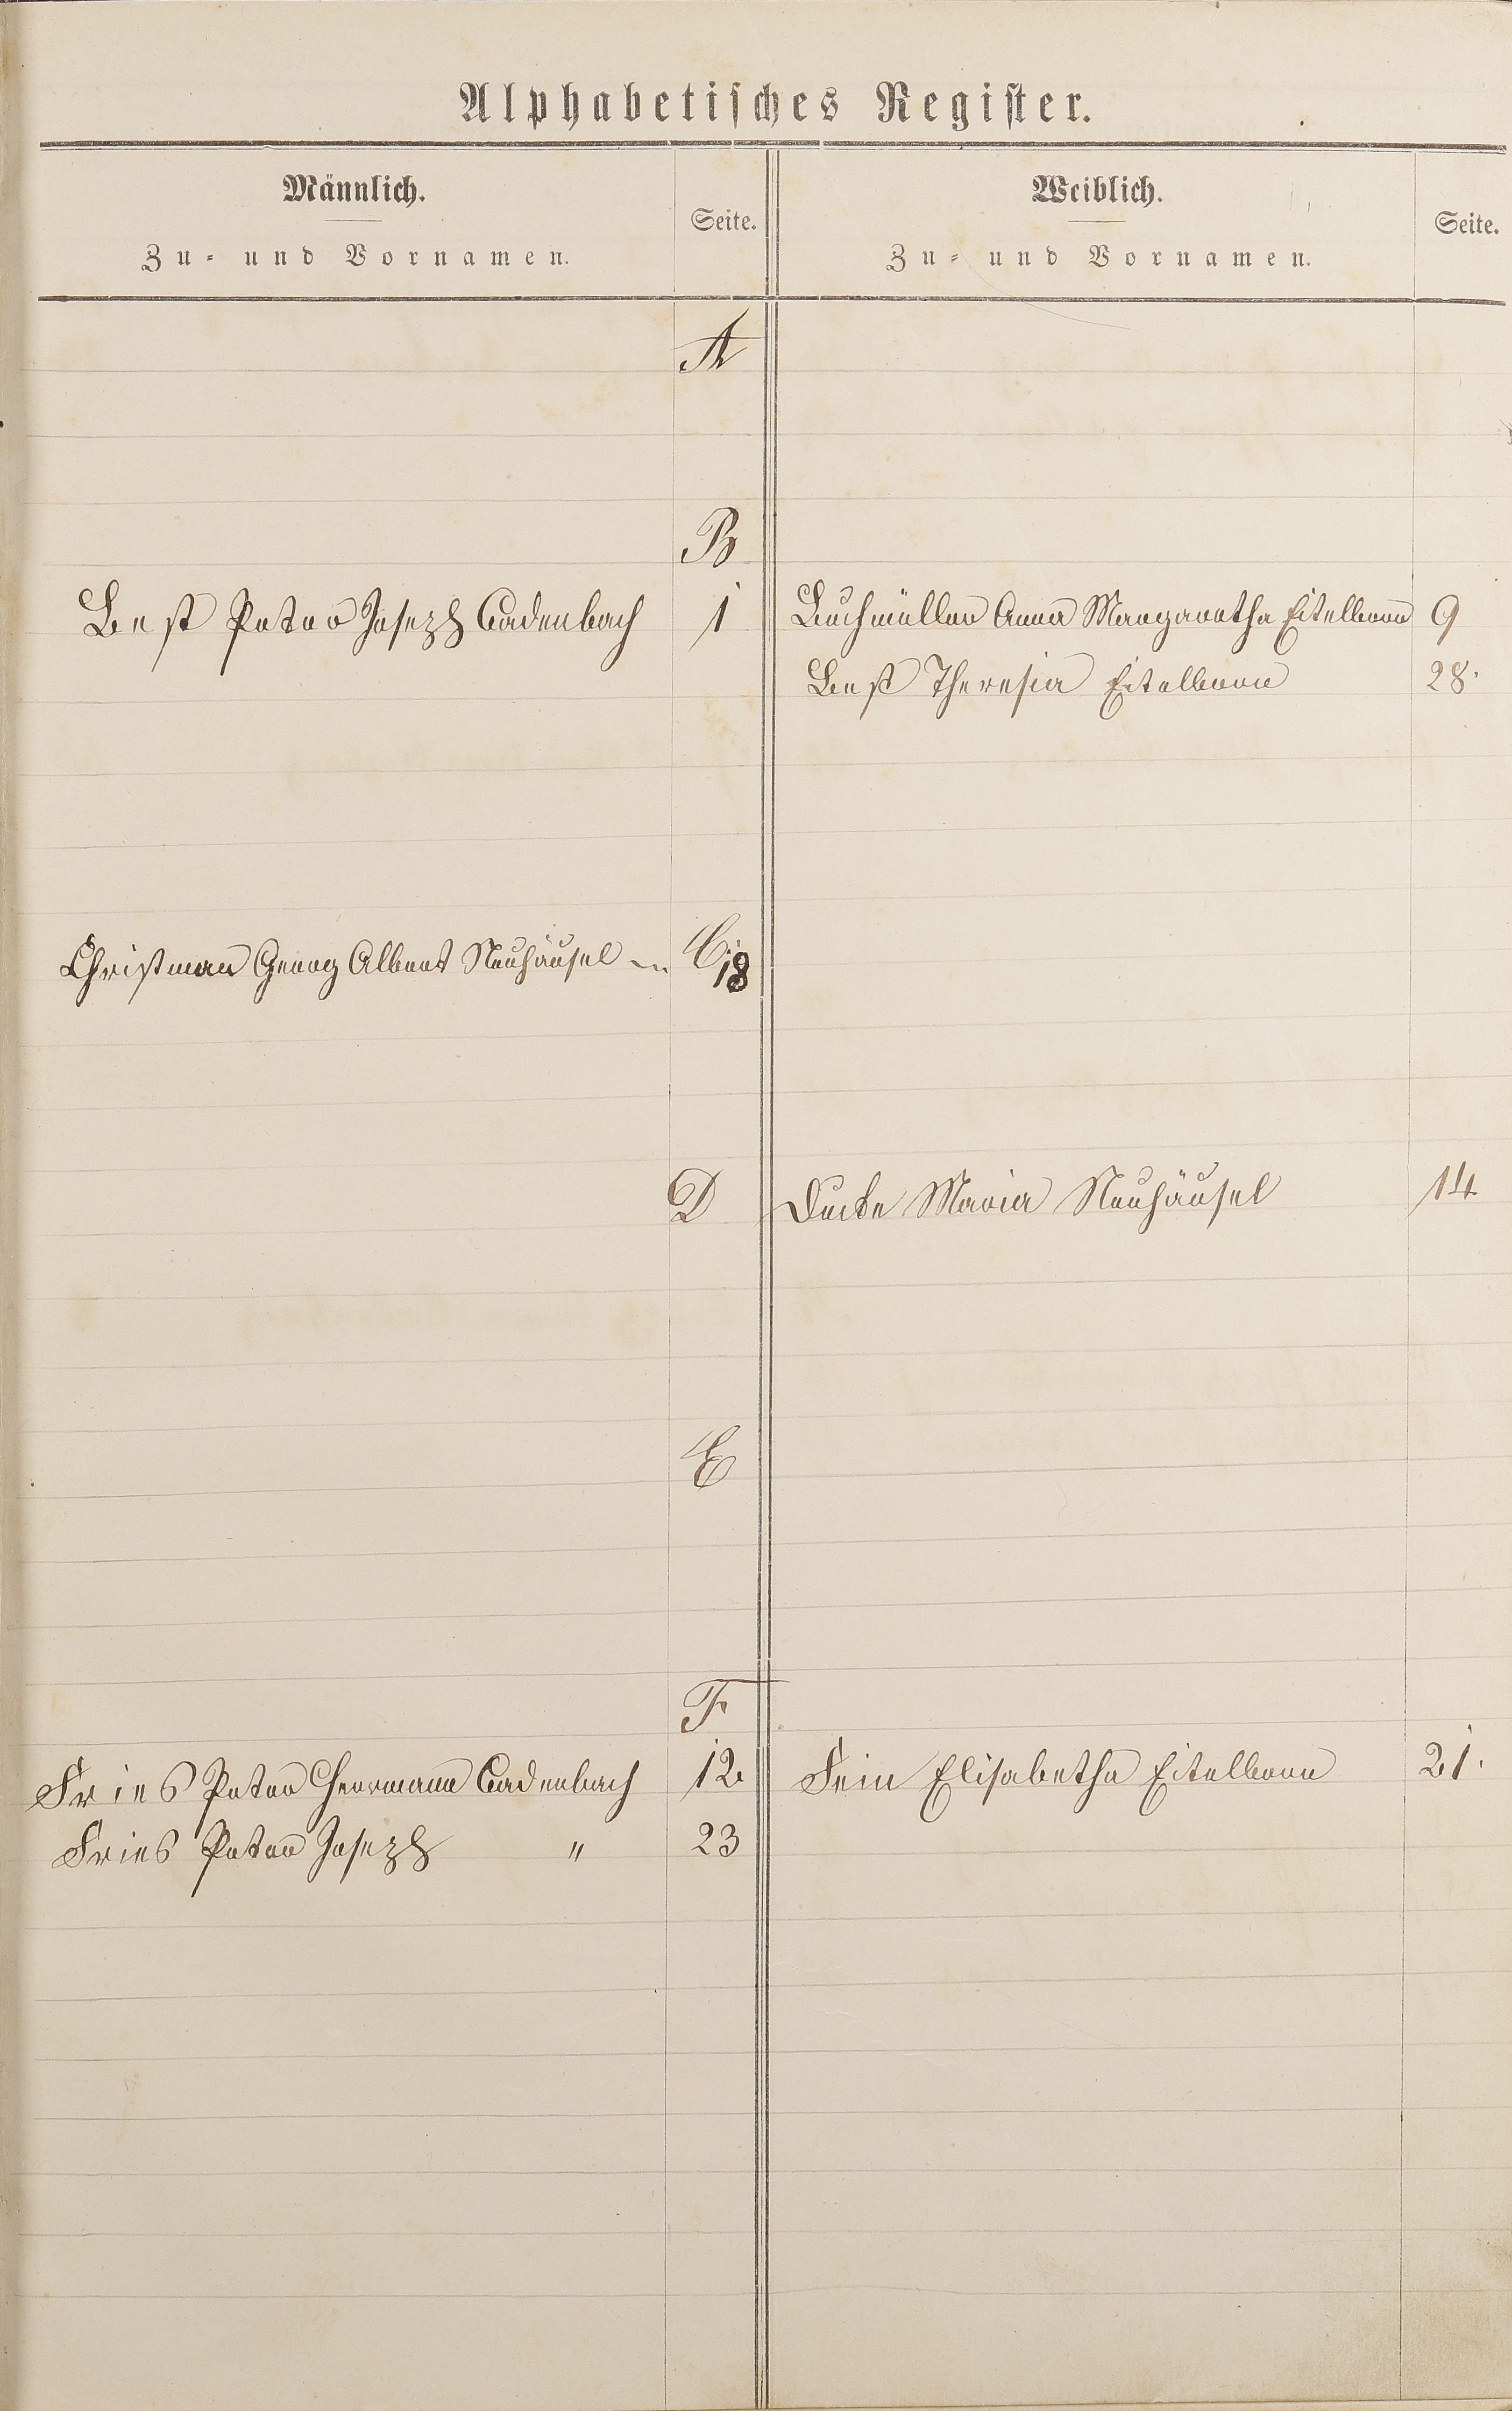 Alphabetisches Register.
Männlich.
Zu- und Vornamen.
Seite.
Weiblich.
Zu- und Vornamen.
Seite.
A
B
Best Peter Joseph Cadenbach 1 Buchmüller Anna Margaretha Eitelborn 9
Best Theresia Eitelborn 28.
Christman Georg Albert Neuhäusel C. 18
D Maria Neuhäusel 14
E
F
Fries Peter Herrmann Cadenbach 12 Fein Elisabetha Eitelborn 21.
Fries Peter Joseph " 23